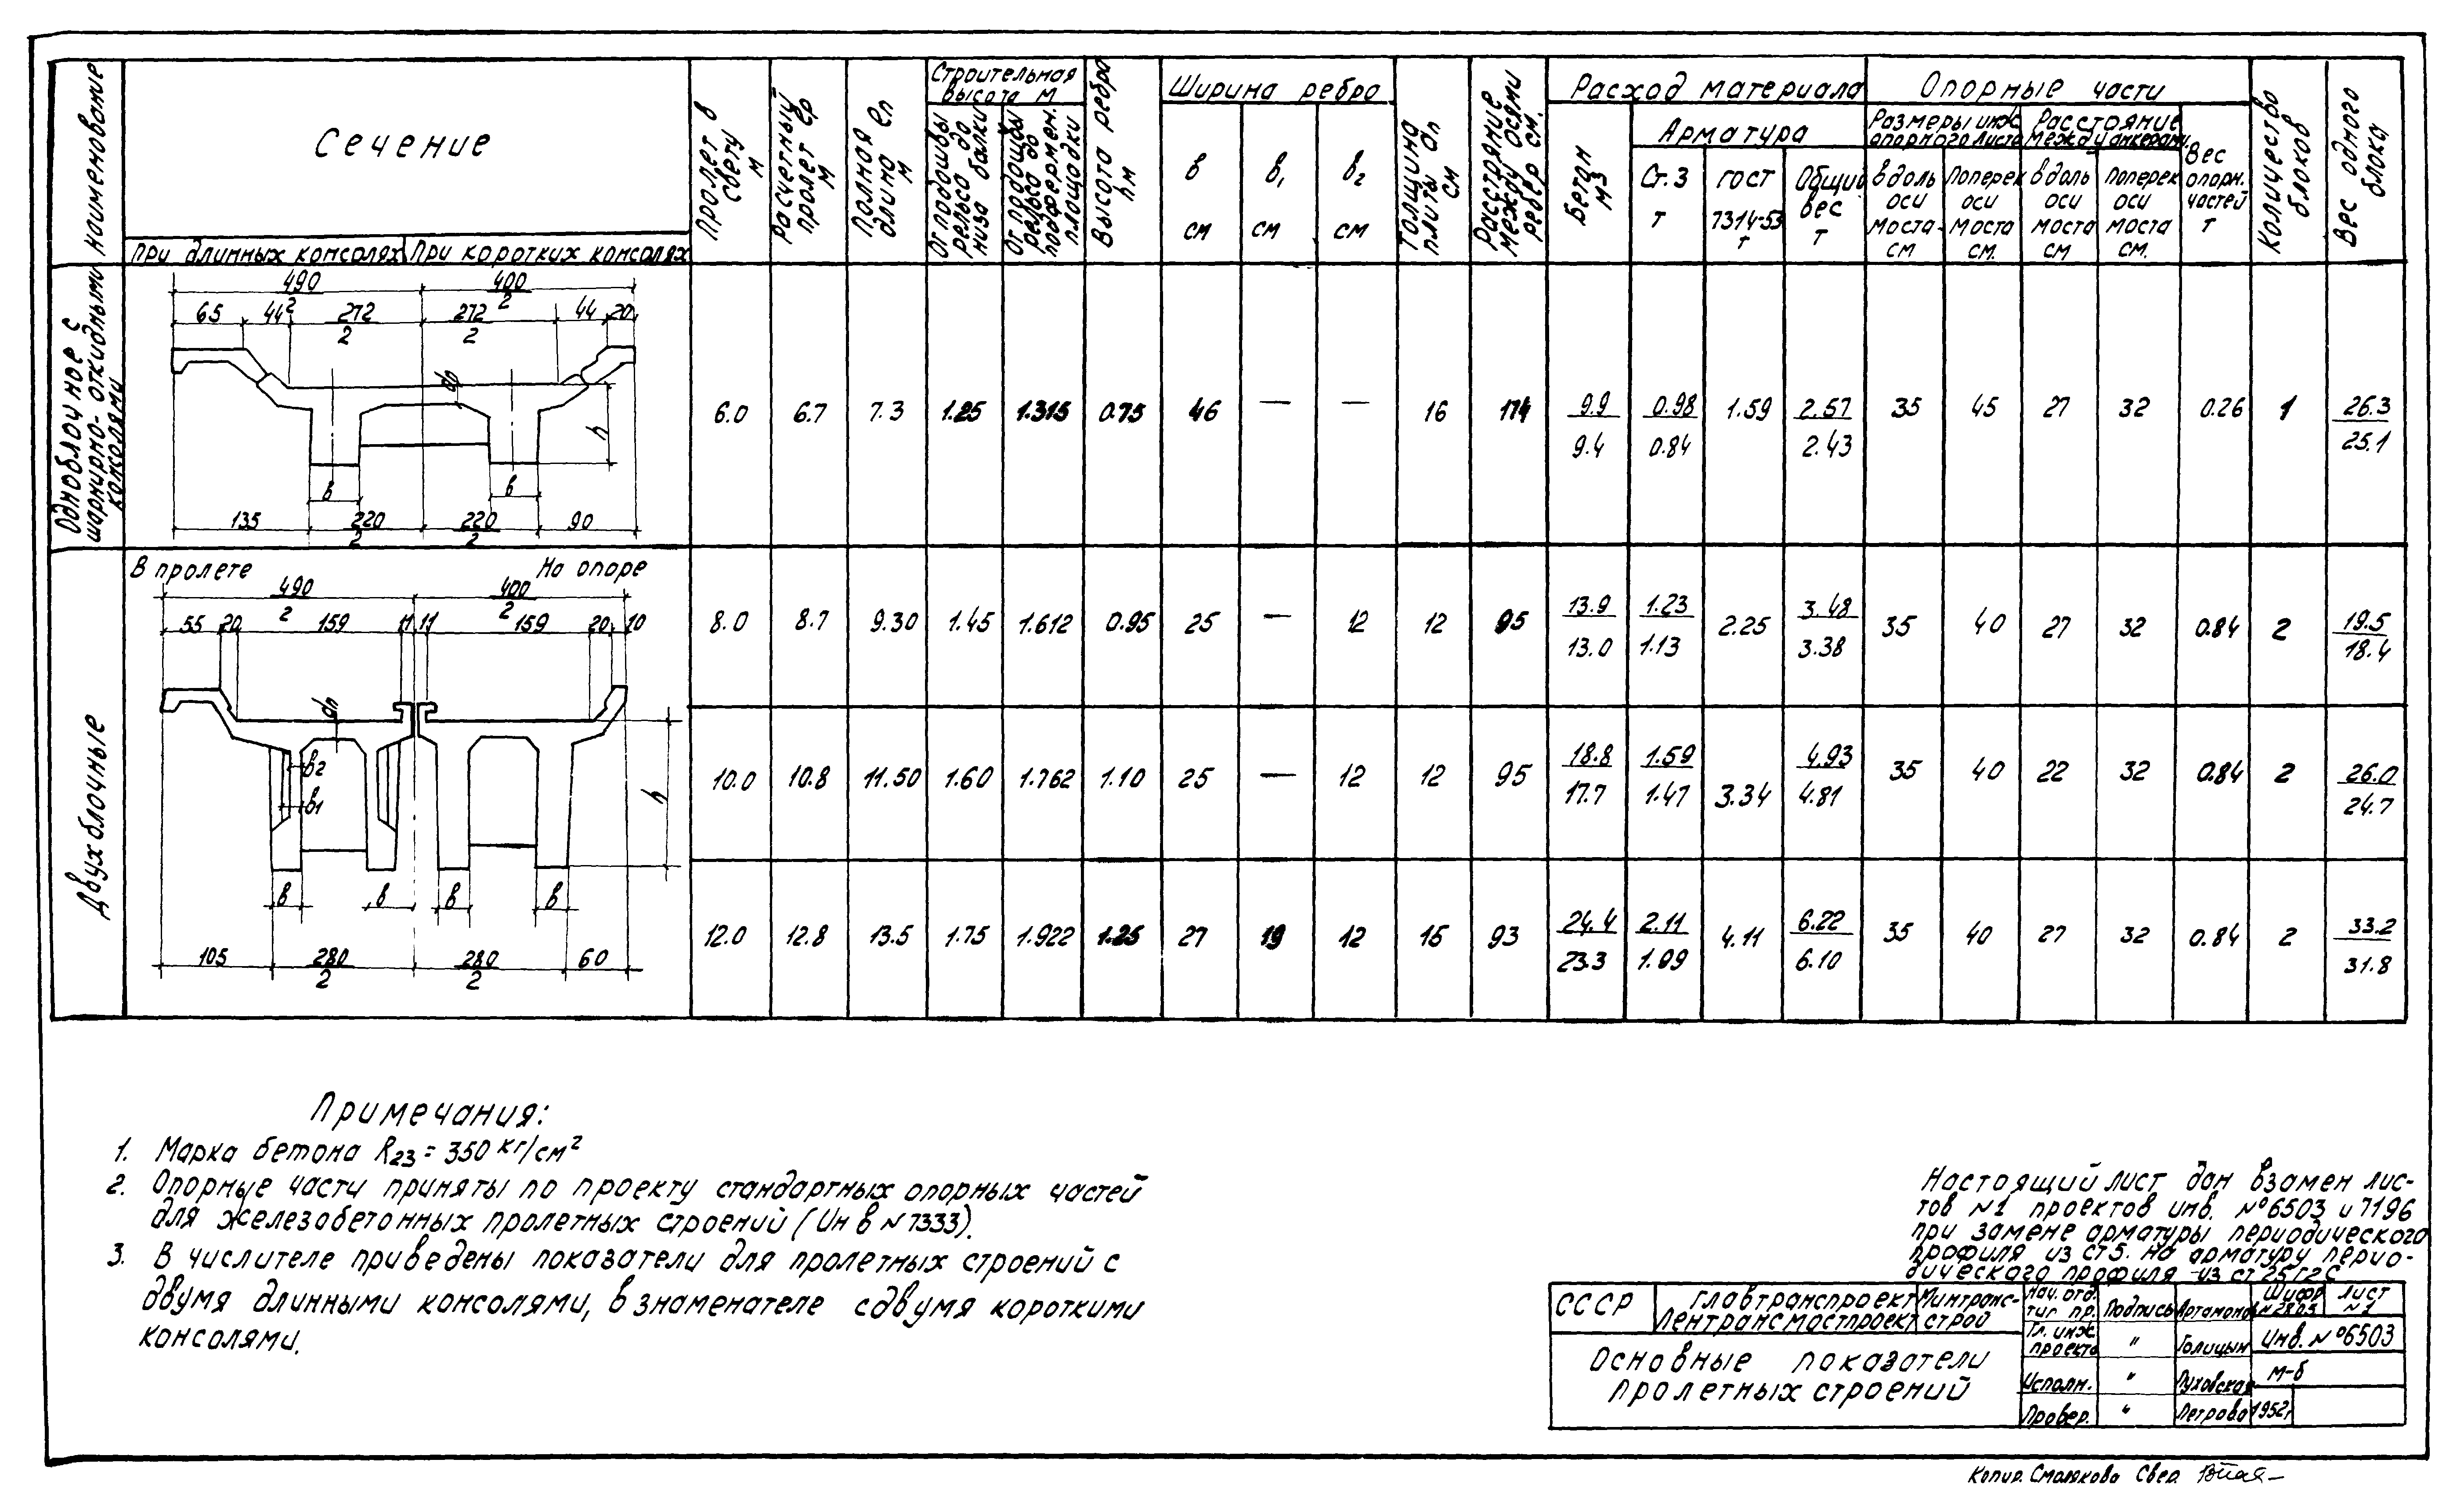 наименование
Сечение
при длинных консолях При коротких консолях
Пролет в свету м
Расчетный пролет ℓр м
Полная длина ℓп м
Строительная высота м
От подошвы рельса до низа балки
От подошвы рельса до подфермен. площадки
Высота ребра hм
Ширина ребра
в см
в₁ см
в₂ см
Толщина плиты dп см
Расстояние между осями ребер см.
Расход материала
Бетон м3
Арматура
Ст.3 т
гост 7314-53 т
Общий вес т
Опорные части
Размеры ниж. опорного листа
вдоль оси моста см
Поперек оси моста см.
Расстояние между анкерами
вдоль оси моста см
поперек оси моста см.
Вес опорн. частей т
Количество блоков
Вес одного блока
Одноблочное с шарнирно-откидными консолями
490/2 400/2
65 44 272/2 272/2 44 20
dп
h
в в
135 220/2 220/2 90
6.0 6.7 7.3 1.25 1.315 0.75 46 — — 16 174 9.9/9.4 0.98/0.84 1.59 2.57/2.43 35 45 27 32 0.26 1 26.3/25.1
Двухблочные
В пролете На опоре
490/2 400/2
55 20 159 11 11 159 20 10
dп
в2
в1
h
в в в в
105 280/2 280/2 60
8.0 8.7 9.30 1.45 1.612 0.95 25 — 12 12 95 13.9/13.0 1.23/1.13 2.25 3.48/3.38 35 40 27 32 0.84 2 19.5/18.4
10.0 10.8 11.50 1.60 1.762 1.10 25 — 12 12 95 18.8/17.7 1.59/1.47 3.34 4.93/4.81 35 40 22 32 0.84 2 26.0/24.7
12.0 12.8 13.5 1.75 1.922 1.25 27 19 12 15 93 24.4/23.3 2.11/1.99 4.11 6.22/6.10 35 40 27 32 0.84 2 33.2/31.8
Примечания:
1. Марка бетона R23 = 350 кг/см²
2. Опорные части приняты по проекту стандартных опорных частей
для железобетонных пролетных строений (Инв №7333).
3. В числителе приведены показатели для пролетных строений с
двумя длинными консолями, в знаменателе с двумя короткими
консолями.
Настоящий лист дан взамен лис-
тов №1 проектов инв. №6503 и 7196
при замене арматуры периодического
профиля из ст5. на арматуру перио-
дического профиля из ст 25Г2С
СССР
Главтранспроект Минтранс-
Лентрансмостпроект строй
Основные показатели
пролетных строений
Нач. отд. тип. пр. Подпись Артамонов Шифр №2805 лист №1
Гл. инж. проекта " Голицын Инв. №6503
Исполн. " Пуховская м-б
Провер. " Петрова 1952г
Копир. Смолякова Свер.